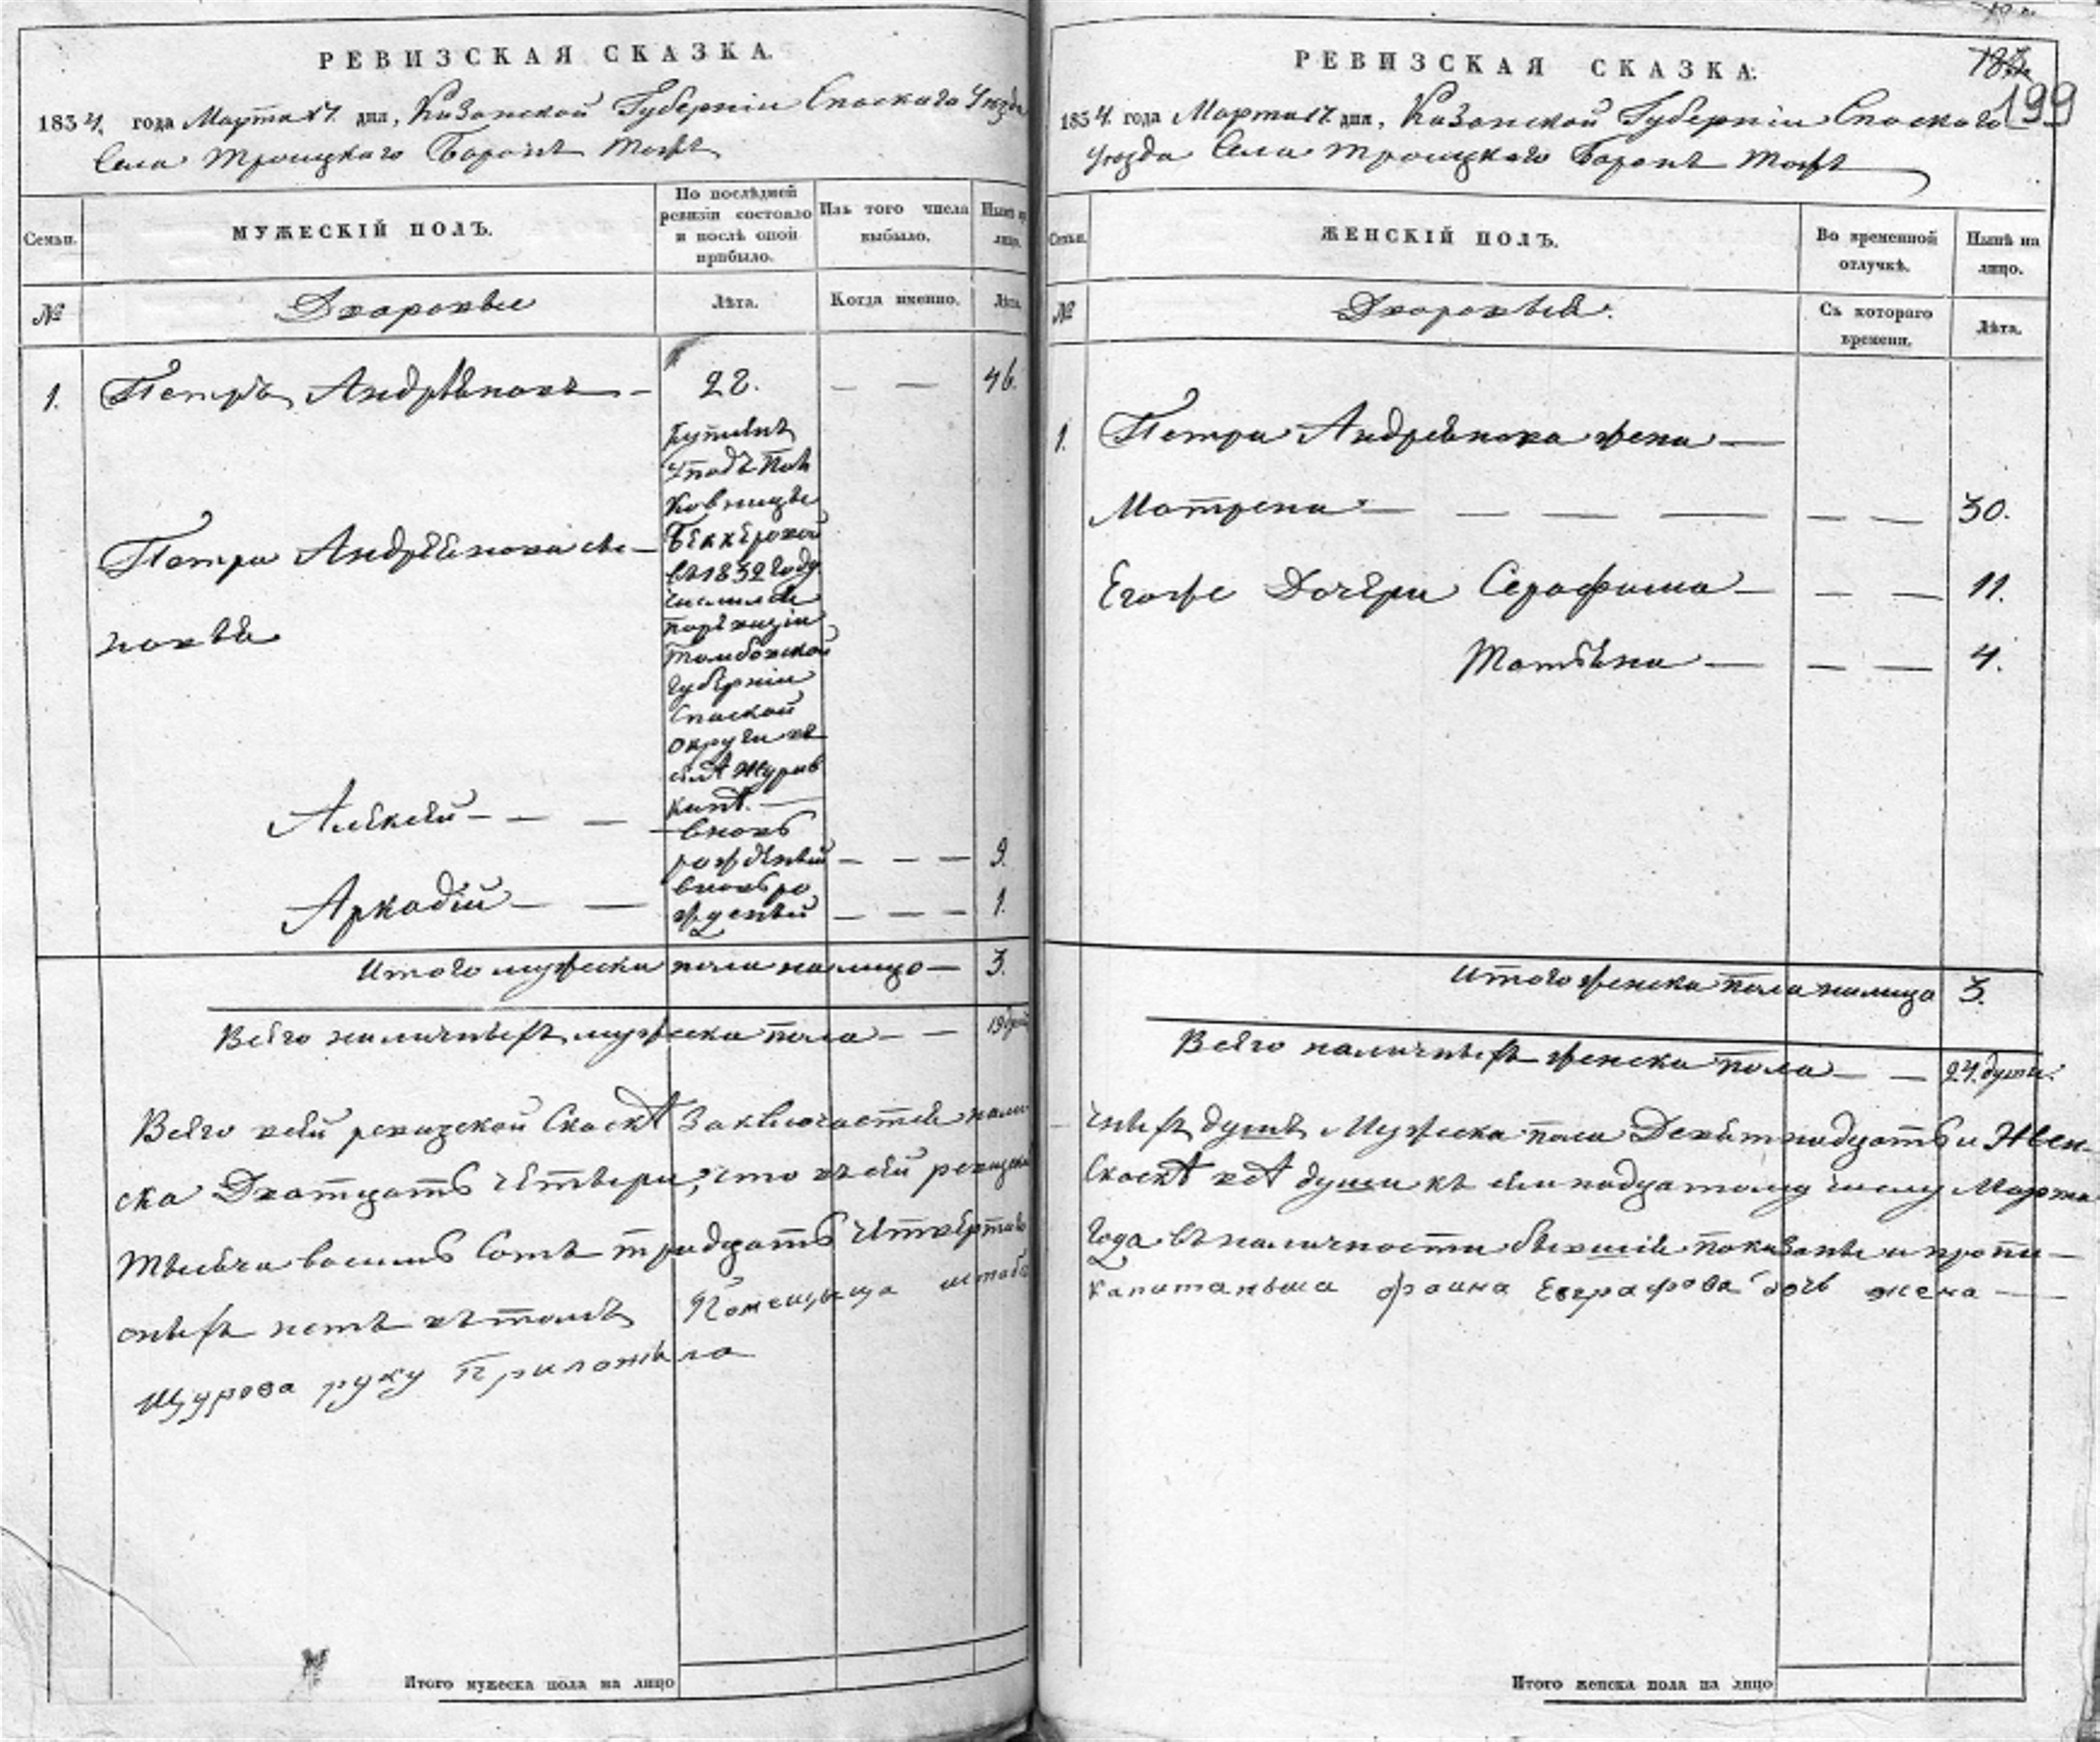 РЕВИЗСКАЯ СКАЗКА.
1834. года Марта 17. дня, Казанской Губернiи Спаскаго Уезда
Села Троицкаго Баранъ тожъ
Семьи.
МУЖЕСКIЙ ПОЛЪ.
По послѣдней ревизiи состояло и послѣ оной прибыло.
Изъ того числа выбыло.
Нынѣ на лицо.
№
Дворовые
Лѣта.
Когда именно.
Лѣта.
1. Петръ Андрѣяновъ — 22. — — 46.
купленъ
Упадъ Пол
ковницы
Беккеровой
въ 1832 году
числился
по ревизiи
Тамбовской
Губернiи
Спаской
округи въ
селѣ Журав
кинѣ. —
Петра Андреянова сы—
новья
Алексей — — — вновь
рожденый — — — 9.
Аркадiй — — вновь ро
жденый — — — 1.
Итого мужеска пола на лицо — 3.
Всего наличныхъ мужеска пола — — 19 душъ
Всего въ сей ревизской Скаскѣ Заключается нали
ска Дватцать четыре, что въ сей ревизской
тысяча восемь Сотъ тридцать четвертаго
оныхъ нетъ въ томъ Помещица штабс
Щурова руку Приложила
Итого мужеска пола на лицо
РЕВИЗСКАЯ СКАЗКА.
199
1834. года Марта 17. дня, Казанской Губернiи Спаскаго
Уезда Села Троицкаго Баранъ тожъ
Семьи.
ЖЕНСКIЙ ПОЛЪ.
Во временной отлучкѣ.
Нынѣ на лицо.
№
Дворовыя.
Съ котораго времени.
Лѣта.
1. Петра Андреянова жена —
Матрена — — — — — — 30.
Егоже Дочери Серафима — — — 11.
Татьяна — — — 4.
Итого женска пола налицо 3.
Всего наличныхъ женска пола — — 24. души.
чныхъ душъ Мужеска пола Девятнадцать и Жен-
Скаскѣ всѣ души къ семнадцатому числу Марта
Года въ наличности бывшiя показаны и пропи—
капитаньша фаина Евграфова дочь жена —
Итого женска пола на лицо